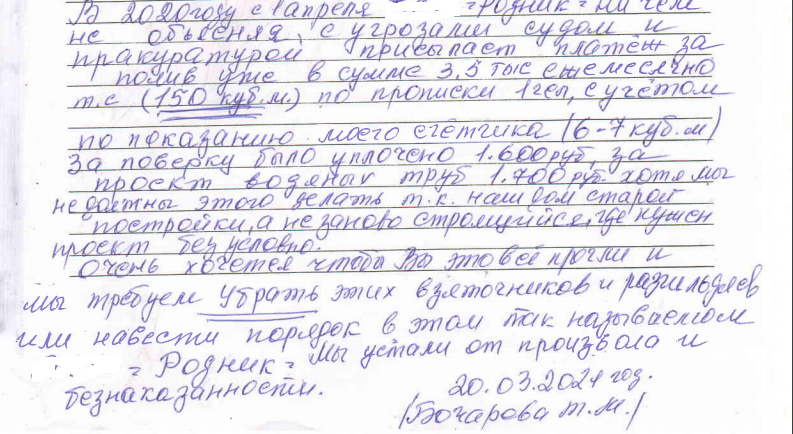 В 2020году с 1апреля =Родник= ни чем
не объесняя, с угрозами судом и
пракуратурой присылает платёж за
полив уже в сумме 3,5 тыс ежемесячно
т.е (150 куб.м.) по прописки 1чел, с учётом
по показанию моего счётчика (6-7 куб.м)
За поверку было уплочено 1.600руб, за
проект водяных труб 1.700руб хотя мы
не должны этого делать т.к. наш дом старой
постройки, а не заново строющийся, где нужен
проект безусловно.
Очень хочется чтобы Вы это всё прочли и
мы требуем убрать этих взяточников и разгильдяев
или навести порядок в этом так называемом
=Родник= Мы устали от произвола и
безнаказанности.
20.03.2021 год.
/Бочарова т.м./